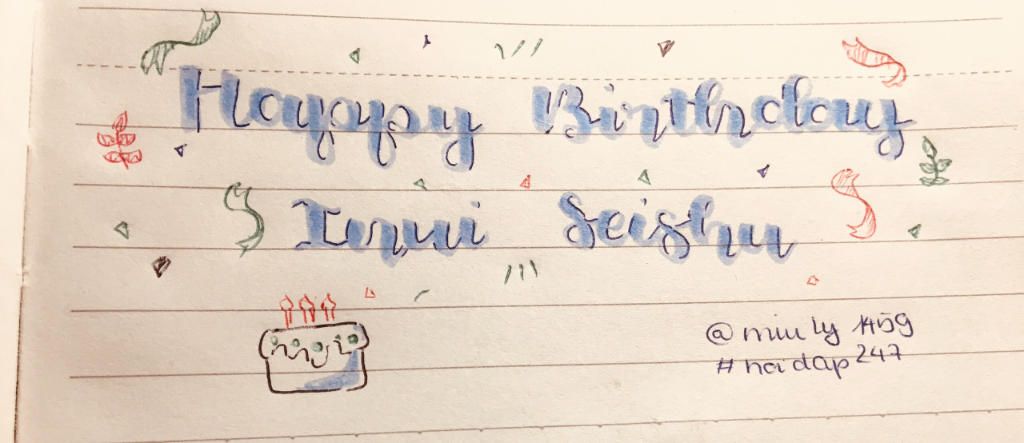 Happy Birthday
Inui Seishu
@miuly1459
#hoidap247